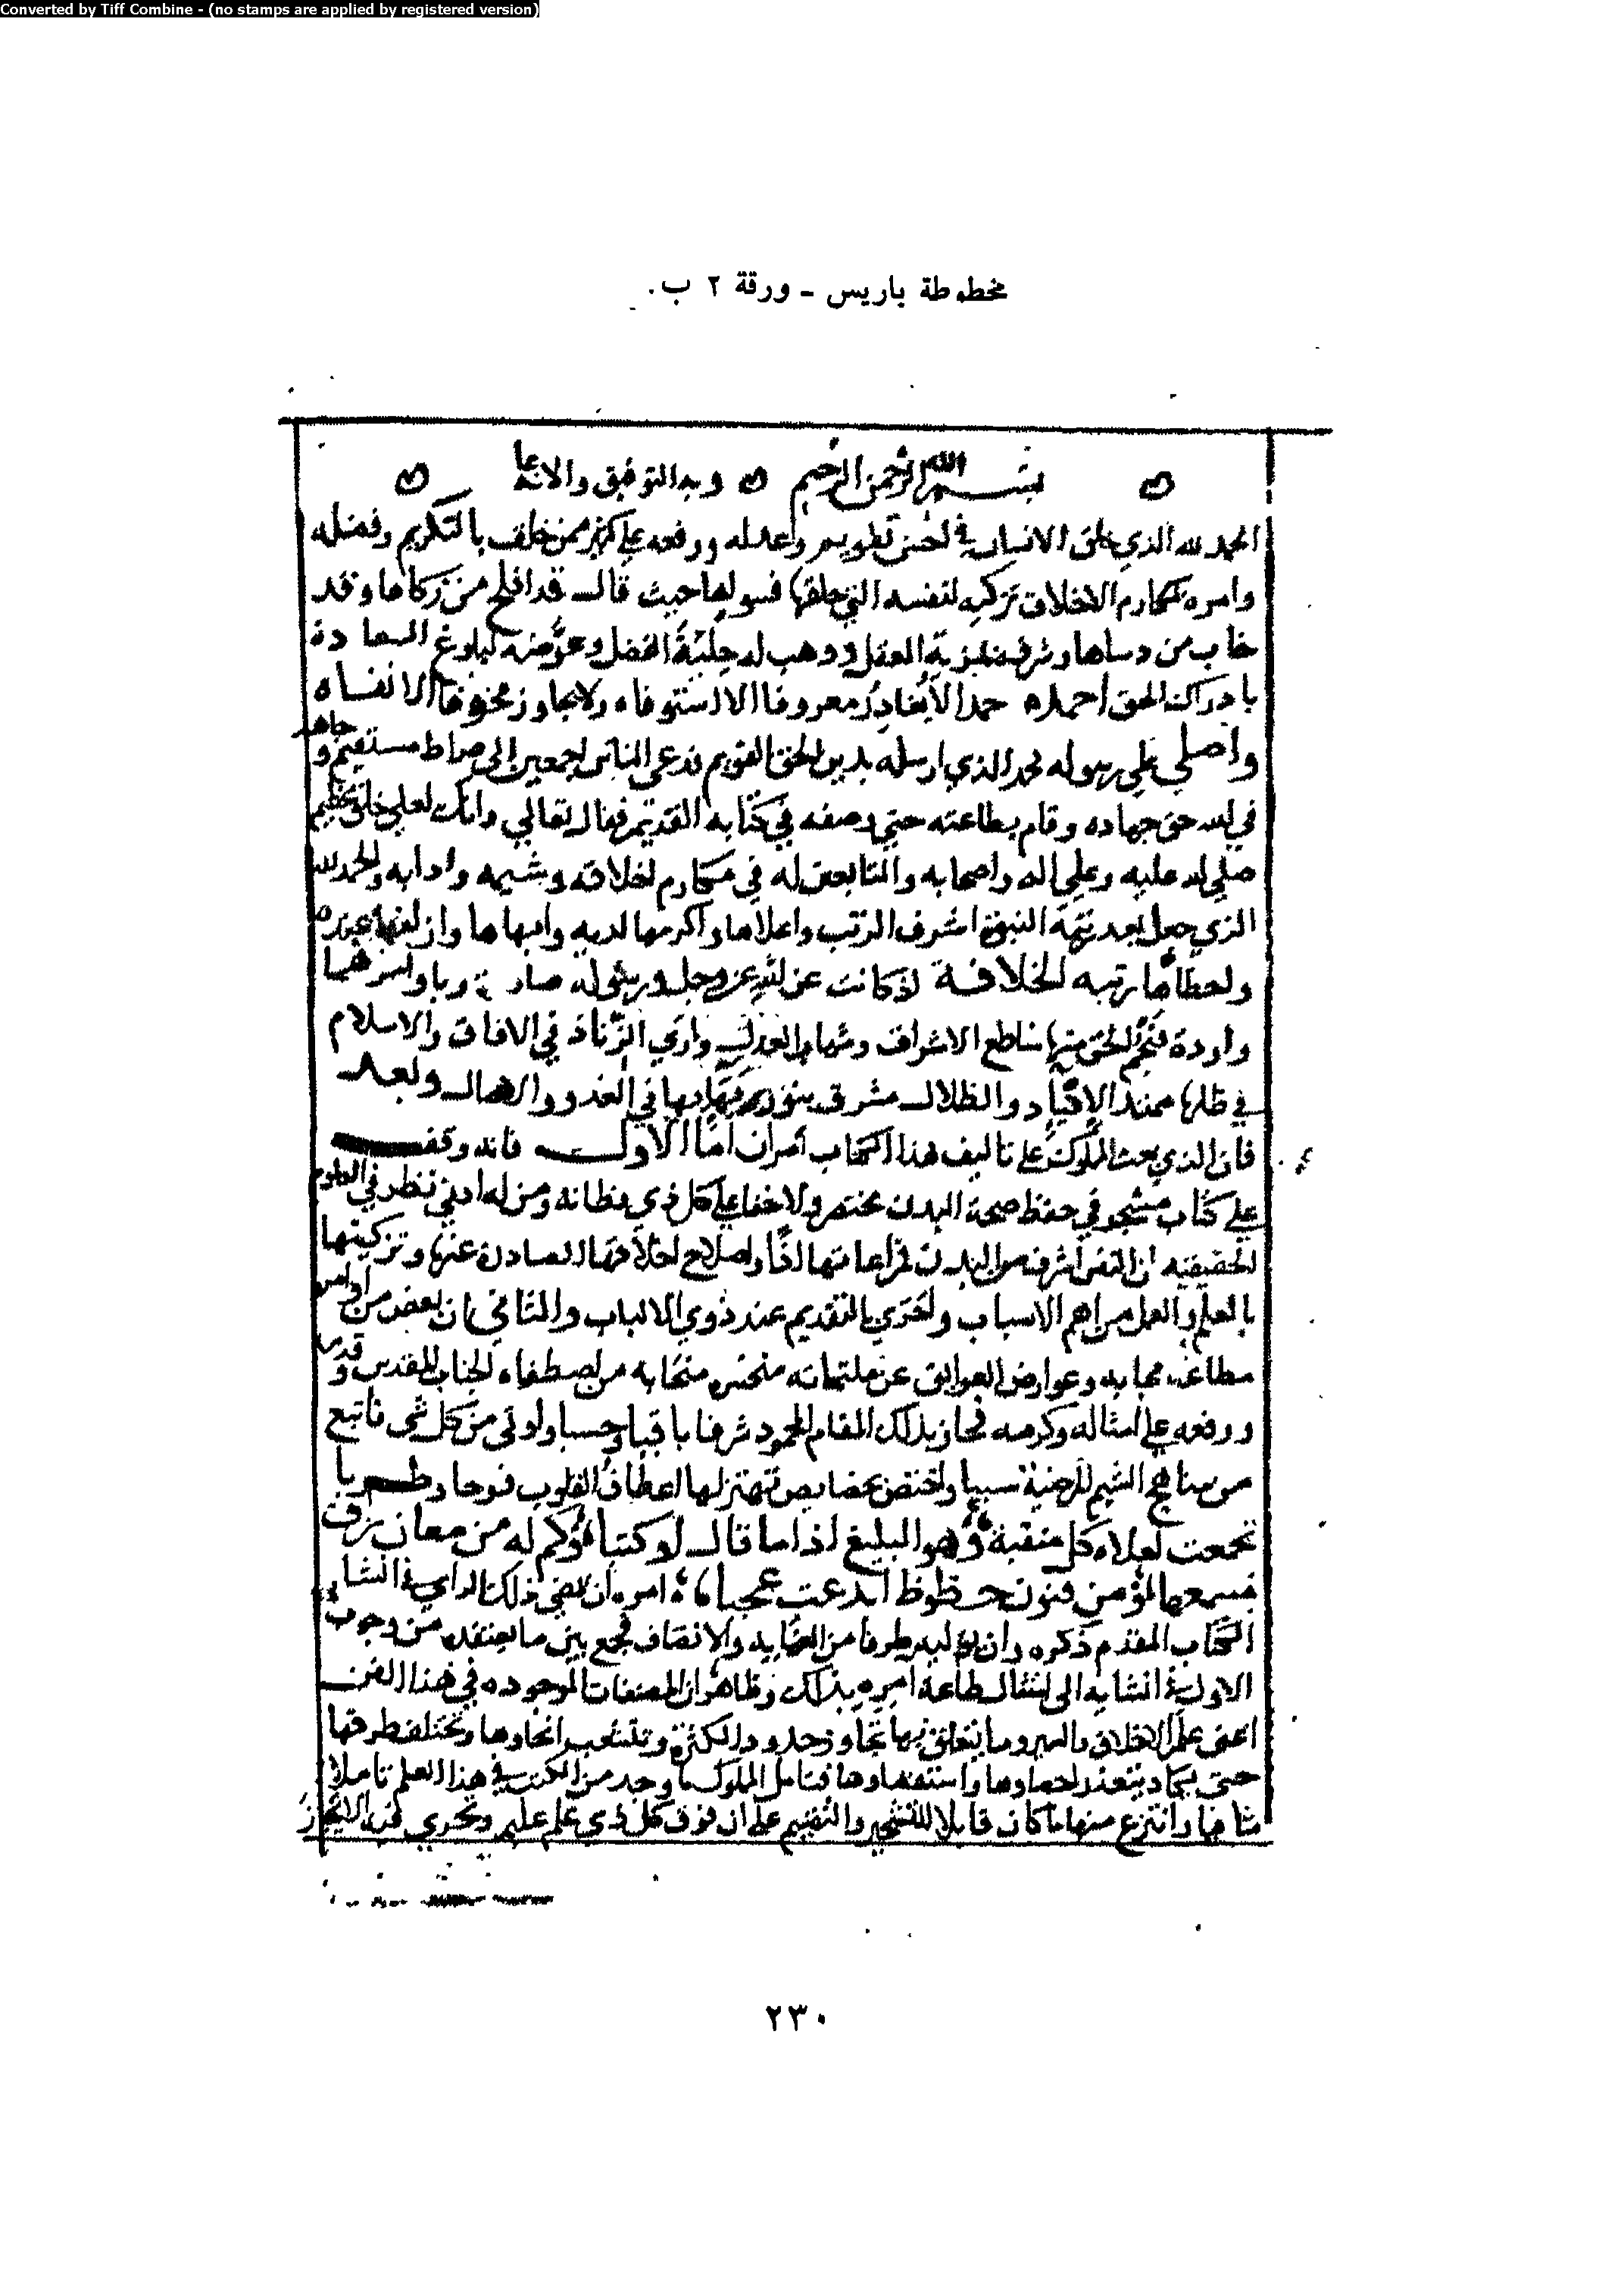 Converted by Tiff Combine - (no stamps are applied by registered version)
مخطوطة باريس - ورقة ٢ ب.
بسم الله الرحمن الرحيم وبه التوفيق والاعانه
الحمد لله الذي خلق الانسان في احسن تقويم وعدله ورفعه علي كثير ممن خلق بالتكريم وفضله
وامره بمكارم الاخلاق تزكيه لنفسه التي خلقها فسولها حيث قال قد افلح من زكاها وقد
خاب من دساها وشرفه بمزية العقل ووهب له حلية الفضل وعرضه لبلوغ السعادة
بادراك الحق احمده حمدا لا يغادر معروفا الا استوفاه ولا يجاوز مخوفا الا نفاه
واصلي علي رسوله محمد الذي ارسله بدين الحق القويم فدعى الناس اجمعين الى صراط مستقيم وجاهد
في الله حق جهاده وقام بطاعته حتي وصفه في كتابه القديم فقال تعالي وانك لعلي خلق عظيم
صلي الله عليه وعلي اله واصحابه والتابعين له في مكارم اخلاقه وشيمه وادابه والحمد لله
الذي جعل بعد رتبة النبوة اشرف الرتب واعلاها واكرمها لديه وابهاها وازلفها عنده
واحظاها رتبه الخلافة اذ كانت عن الله عز وجل ورسوله صادرة وباوامرهما
واردة فنجم الحق منها ساطع الاشراق وشهاب العدل واري الزناد في الافاق والاسلام
في ظلها ممتد الافياء والظلال مشرق بنور في الغدو والاصال وبعد
فان الذي بعث المملوك علي تاليف هذا الكتاب امران اما الاول فانه وقف
علي كتاب مشجر في حفظ صحة البدن مختصر ولا خفا علي كل ذي فطانه ومن له ادني نظر في العلوم
الحقيقيه ان النفس اشرف من البدن فمراعاتها اذًا واصلاح اخلاقها الصادرة عنها وتزكيتها
بالعلم والعمل من اهم الاسباب واحري بالتقديم عند ذوي الالباب والثاني ان بعض من اوامره
مطاعه وعوارض العوايق عن من اصطفاه الجناب المقدس وقدس
ورفعه علي امثاله وكرمه فحاز بذلك المقام المحمود شرفا باقيا وحسبا واوتي من كل شي فاتبع
من مناهج الشيم المرضية سببا واختص بخصايص تهتز لها اعطاف القلوب فرحا وطربا
تجمعت لعلاه كل منقبة وهو البليغ اذا ما قال او كتبا وكم له من معان
من فنون حظوظ ابدعت عجبا امره ان يمضي ذلك الراي في انشاء
الكتاب المقدم ذكره وان طرفا من فجمع بين ما يعتقده من وجوب
الاول في انشايه الى امتثال طاعة امره بذلك وظاهر ان المصنفات الموجوده في هذا الفن
اعني علم الاخلاق والسير وما يتعلق بها تجاوز حدود الكثرة وتتشعب انحاوها وتختلف طرقها
حتى يكاد يتعذر احصاوها واستقصاوها فتامل المملوك ما وجد من الكتب في هذا العلم تاملا
شافيا وانتزع منها ما كان قابلا للتشجير والتقسيم علي ان فوق كل ذي علم عليم وتحري فيه الايجاز
٢٣٠